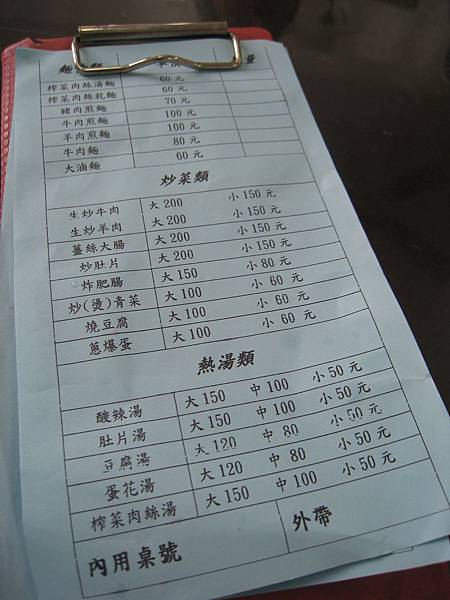 麵 類 量
榨菜肉絲湯麵 60元
榨菜肉絲乾麵 60元
豬肉煎麵 70元
牛肉煎麵 100元
羊肉煎麵 100元
牛肉麵 80元
大滷麵 60元
炒菜類
生炒牛肉 大200 小150元
生炒羊肉 大200 小150元
薑絲大腸 大200 小150元
炒肚片 大200 小150元
炸肥腸 大150 小80元
炒(燙)青菜 大100 小 60元
燒豆腐 大100 小 60元
蔥爆蛋 大100 小 60元
熱湯類
酸辣湯 大150 中100 小50元
肚片湯 大150 中100 小50元
豆腐湯 大120 中80 小50元
蛋花湯 大120 中80 小50元
榨菜肉絲湯 大150 中100 小50元
內用桌號 外帶